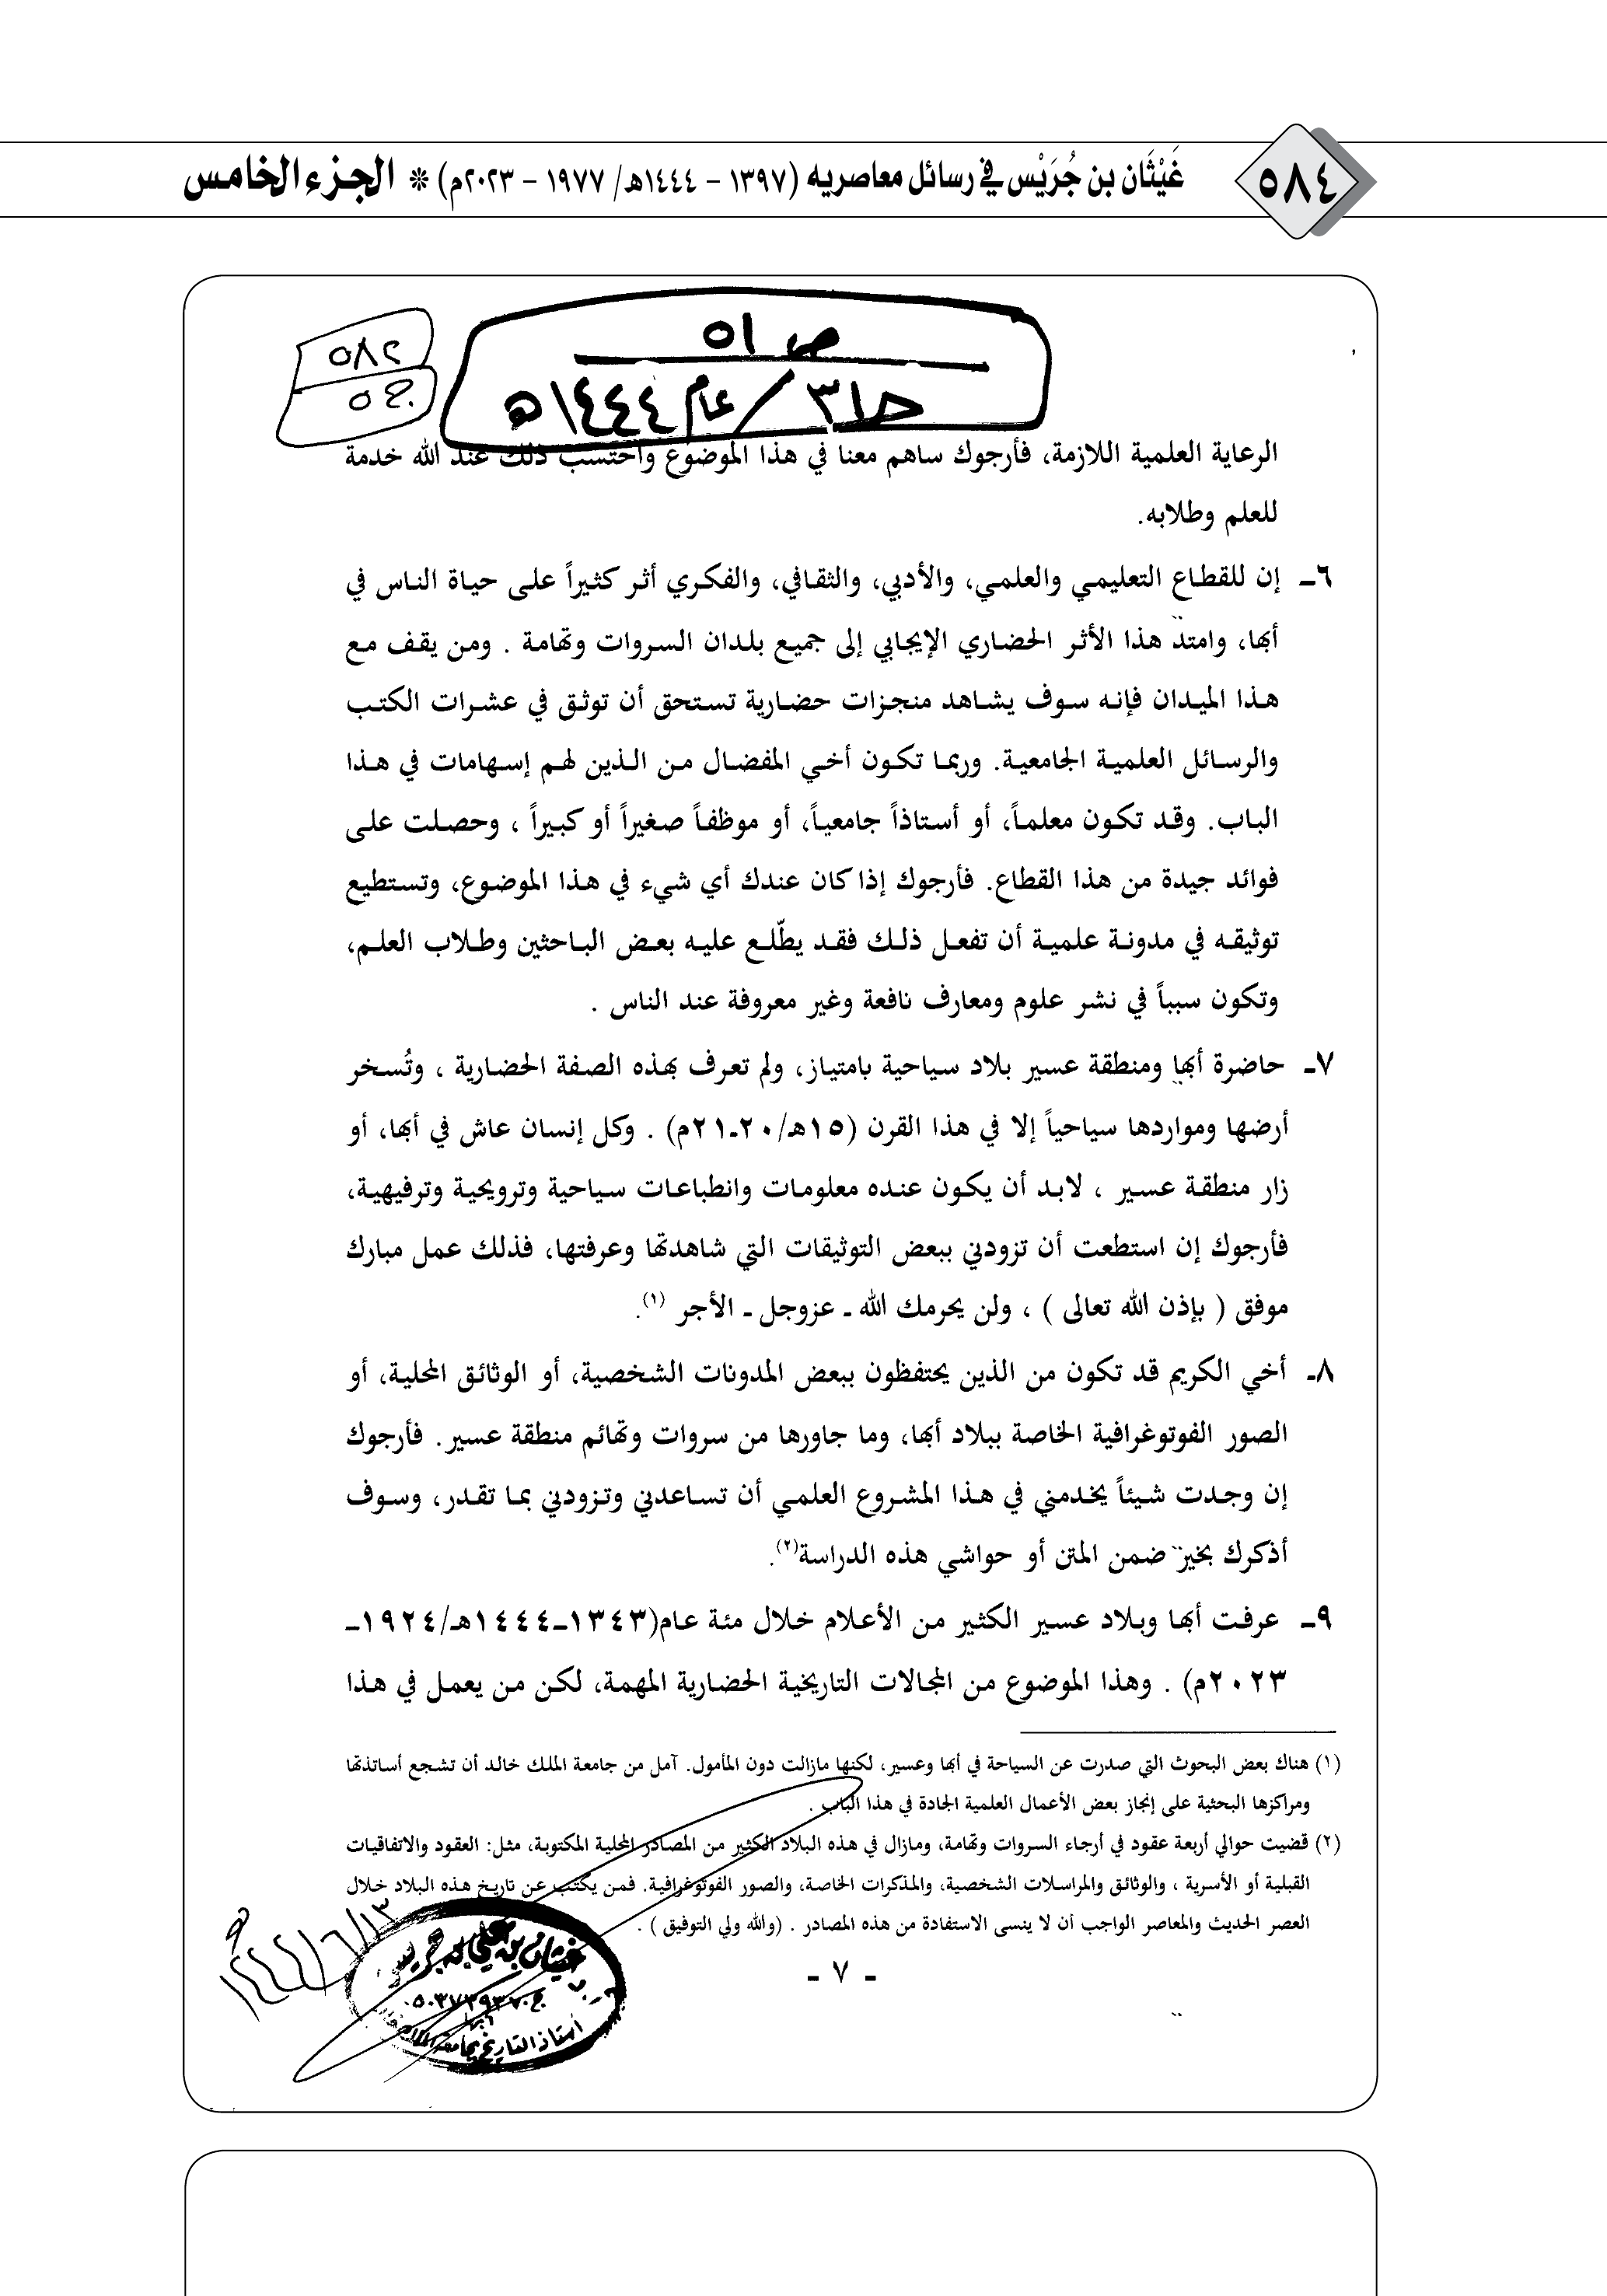 ٥٨٤
غَيْثَان بن جُرَيْس في رسائل معاصريه (١٣٩٧ – ١٤٤٤هـ/ ١٩٧٧ – ٢٠٢٣م) * الجزء الخامس
ص ٥١
ح٣١/ عام ١٤٤٤هـ
٥٨٢
ج ٥
الرعاية العلمية اللازمة، فأرجوك ساهم معنا في هذا الموضوع واحتسب ذلك عند الله خدمة
للعلم وطلابه.
٦ـ إن للقطاع التعليمي والعلمي، والأدبي، والثقافي، والفكري أثر كثيراً على حياة الناس في
أبها، وامتدّ هذا الأثر الحضاري الإيجابي إلى جميع بلدان السروات وتهامة . ومن يقف مع
هذا الميدان فإنه سوف يشاهد منجزات حضارية تستحق أن توثق في عشرات الكتب
والرسائل العلمية الجامعية. وربما تكون أخي المفضال من الذين لهم إسهامات في هذا
الباب. وقد تكون معلماً، أو أستاذاً جامعياً، أو موظفاً صغيراً أو كبيراً ، وحصلت على
فوائد جيدة من هذا القطاع. فأرجوك إذا كان عندك أي شيء في هذا الموضوع، وتستطيع
توثيقه في مدونة علمية أن تفعل ذلك فقد يطّلع عليه بعض الباحثين وطلاب العلم،
وتكون سبباً في نشر علوم ومعارف نافعة وغير معروفة عند الناس .
٧ـ حاضرة أبها ومنطقة عسير بلاد سياحية بامتياز، ولم تعرف بهذه الصفة الحضارية ، وتُسخر
أرضها ومواردها سياحياً إلا في هذا القرن (١٥هـ/٢٠ـ٢١م) . وكل إنسان عاش في أبها، أو
زار منطقة عسير ، لابد أن يكون عنده معلومات وانطباعات سياحية وترويحية وترفيهية،
فأرجوك إن استطعت أن تزودني ببعض التوثيقات التي شاهدتها وعرفتها، فذلك عمل مبارك
موفق ( بإذن الله تعالى ) ، ولن يحرمك الله ـ عزوجل ـ الأجر (١).
٨ـ أخي الكريم قد تكون من الذين يحتفظون ببعض المدونات الشخصية، أو الوثائق المحلية، أو
الصور الفوتوغرافية الخاصة ببلاد أبها، وما جاورها من سروات وتهائم منطقة عسير. فأرجوك
إن وجدت شيئاً يخدمني في هذا المشروع العلمي أن تساعدني وتزودني بما تقدر، وسوف
أذكرك بخير ضمن المتن أو حواشي هذه الدراسة(٢).
٩ـ عرفت أبها وبلاد عسير الكثير من الأعلام خلال مئة عام(١٣٤٣ـ١٤٤٤هـ/١٩٢٤ـ
٢٠٢٣م) . وهذا الموضوع من المجالات التاريخية الحضارية المهمة، لكن من يعمل في هذا
(١) هناك بعض البحوث التي صدرت عن السياحة في أبها وعسير، لكنها مازالت دون المأمول. آمل من جامعة الملك خالد أن تشجع أساتذتها
ومراكزها البحثية على إنجاز بعض الأعمال العلمية الجادة في هذا الباب .
(٢) قضيت حوالي أربعة عقود في أرجاء السروات وتهامة، ومازال في هذه البلاد الكثير من المصادر المحلية المكتوبة، مثل: العقود والاتفاقيات
القبلية أو الأسرية ، والوثائق والمراسلات الشخصية، والمذكرات الخاصة، والصور الفوتوغرافية. فمن يكتب عن تاريخ هذه البلاد خلال
العصر الحديث والمعاصر الواجب أن لا ينسى الاستفادة من هذه المصادر . (والله ولي التوفيق ) .
١٤٤٤/٦/١٣هـ
غيثان بن علي بن جريس
ج٠٥٠٣٧٣٩٣٧٠
أبها
أستاذ التاريخ بجامعة الملك
- ٧ -